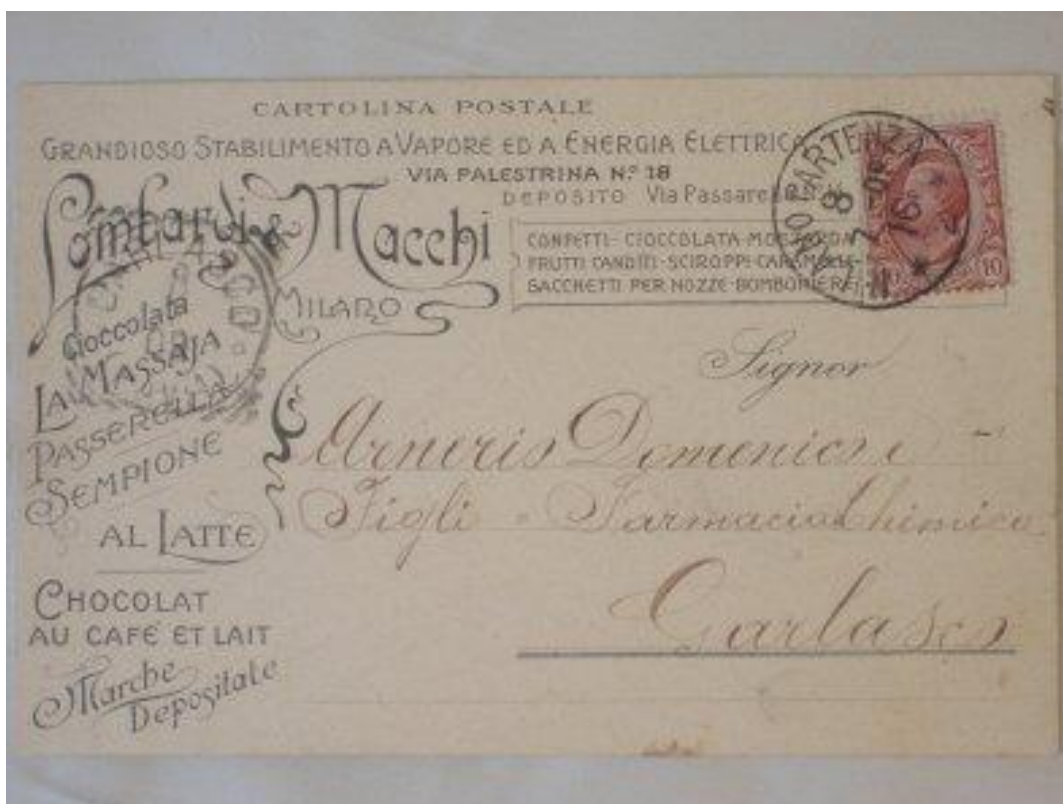 CARTOLINA POSTALE
GRANDIOSO STABILIMENTO A VAPORE ED A ENERGIA ELETTRICA
VIA PALESTRINA N.º 18
DEPOSITO Via Passarella
Lombardi & Macchi
MILANO
CONFETTI-CIOCCOLATA-MOSTARDA
FRUTTI CANDITI-SCIROPPI-CARAMELLE-
SACCHETTI PER NOZZE-BOMBONIERE
PARTENZA
10
Cioccolata
LA MASSAJA
PASSERELLA
SEMPIONE
AL LATTE
CHOCOLAT
AU CAFE ET LAIT
Marche
Depositate
Signor
Arneris Domenico e
Figli Farmacia Chimica
Garlasco